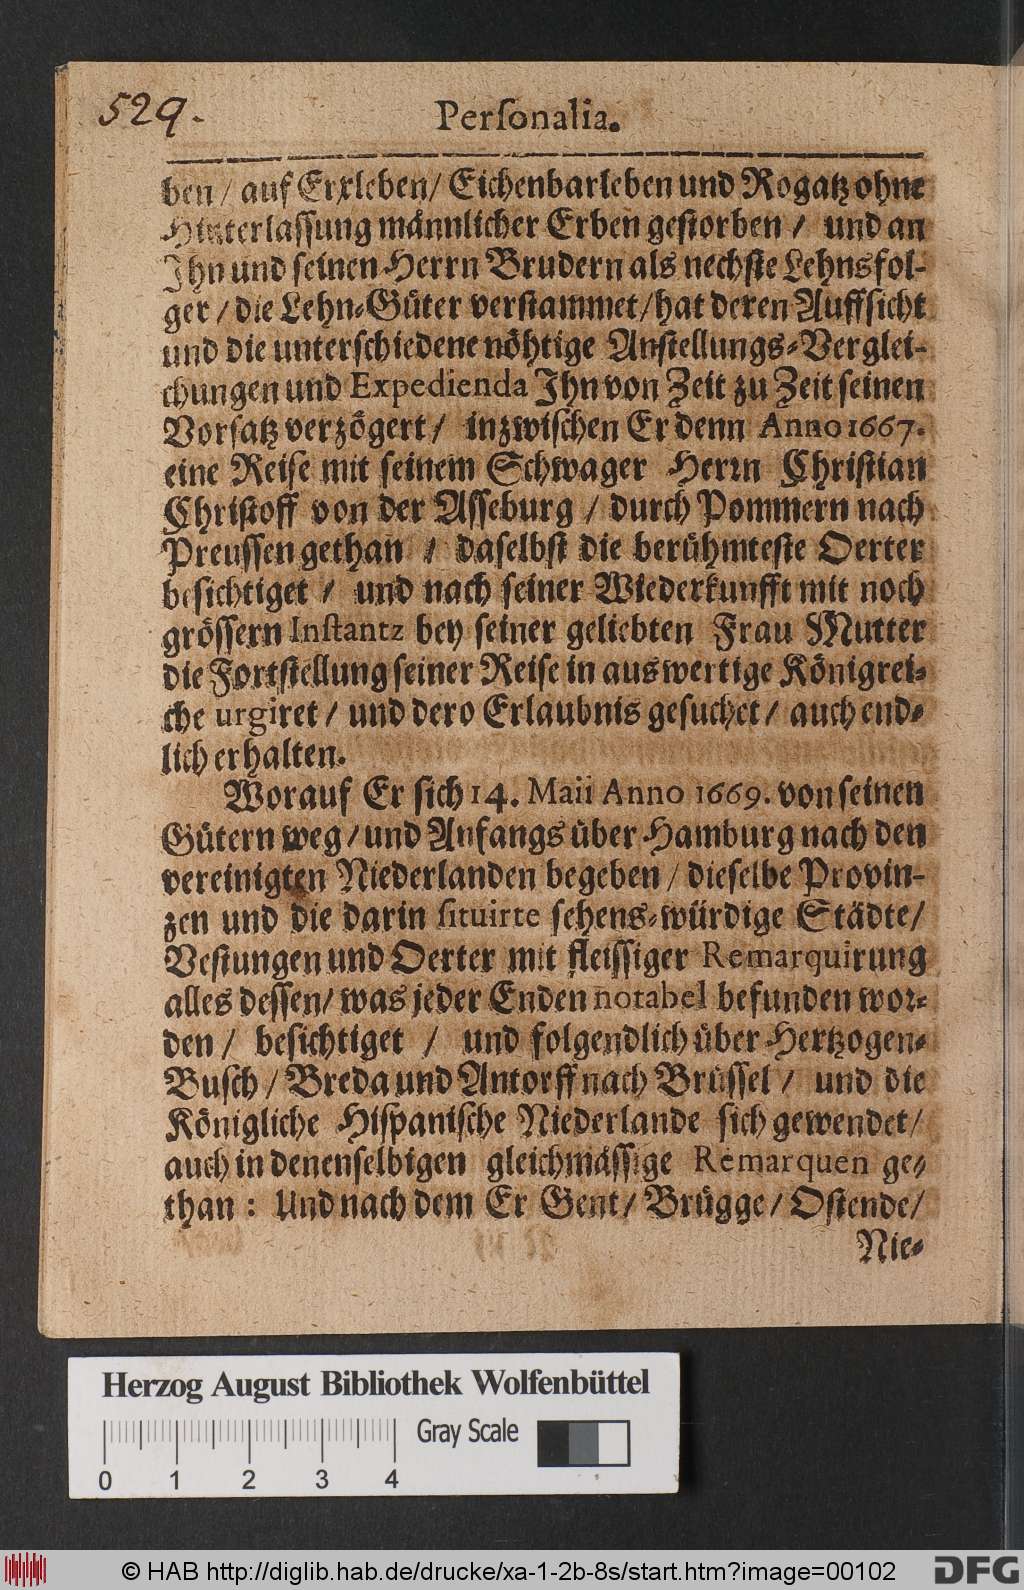 529.
Personalia.
ben / auf Erxleben / Eichenbarleben und Rogatz ohne
Hinterlassung männlicher Erben gestorben / und an
Ihn und seinen Herrn Brudern als nechste Lehnsfol-
ger / die Lehn-Güter verstammet / hat deren Auffsicht
und die unterschiedene nöhtige Anstellungs-Verglei-
chungen und Expedienda Ihn von Zeit zu Zeit seinen
Vorsatz verzögert / inzwischen Er denn Anno 1667.
eine Reise mit seinem Schwager Herrn Christian
Christoff von der Asseburg / durch Pommern nach
Preussen gethan / daselbst die berühmteste Oerter
besichtiget / und nach seiner Wiederkunfft mit noch
grössern Instantz bey seiner geliebten Frau Mutter
die Fortstellung seiner Reise in auswertige Königrei-
che urgiret / und dero Erlaubnis gesuchet / auch end-
lich erhalten.
Worauf Er sich 14. Maii Anno 1669. von seinen
Gütern weg / und Anfangs über Hamburg nach den
vereinigten Niederlanden begeben / dieselbe Provin-
zen und die darin situirte sehens-würdige Städte /
Vestungen und Oerter mit fleissiger Remarquirung
alles dessen / was jeder Enden notabel befunden wor-
den / besichtiget / und folgendlich über Hertzogen-
Busch / Breda und Antorff nach Brüssel / und die
Königliche Hispanische Niederlande sich gewendet /
auch in denenselbigen gleichmässige Remarquen ge-
than : Und nach dem Er Gent / Brügge / Ostende /
Nie-
Herzog August Bibliothek Wolfenbüttel
Gray Scale
0 1 2 3 4
© HAB http://diglib.hab.de/drucke/xa-1-2b-8s/start.htm?image=00102
DFG